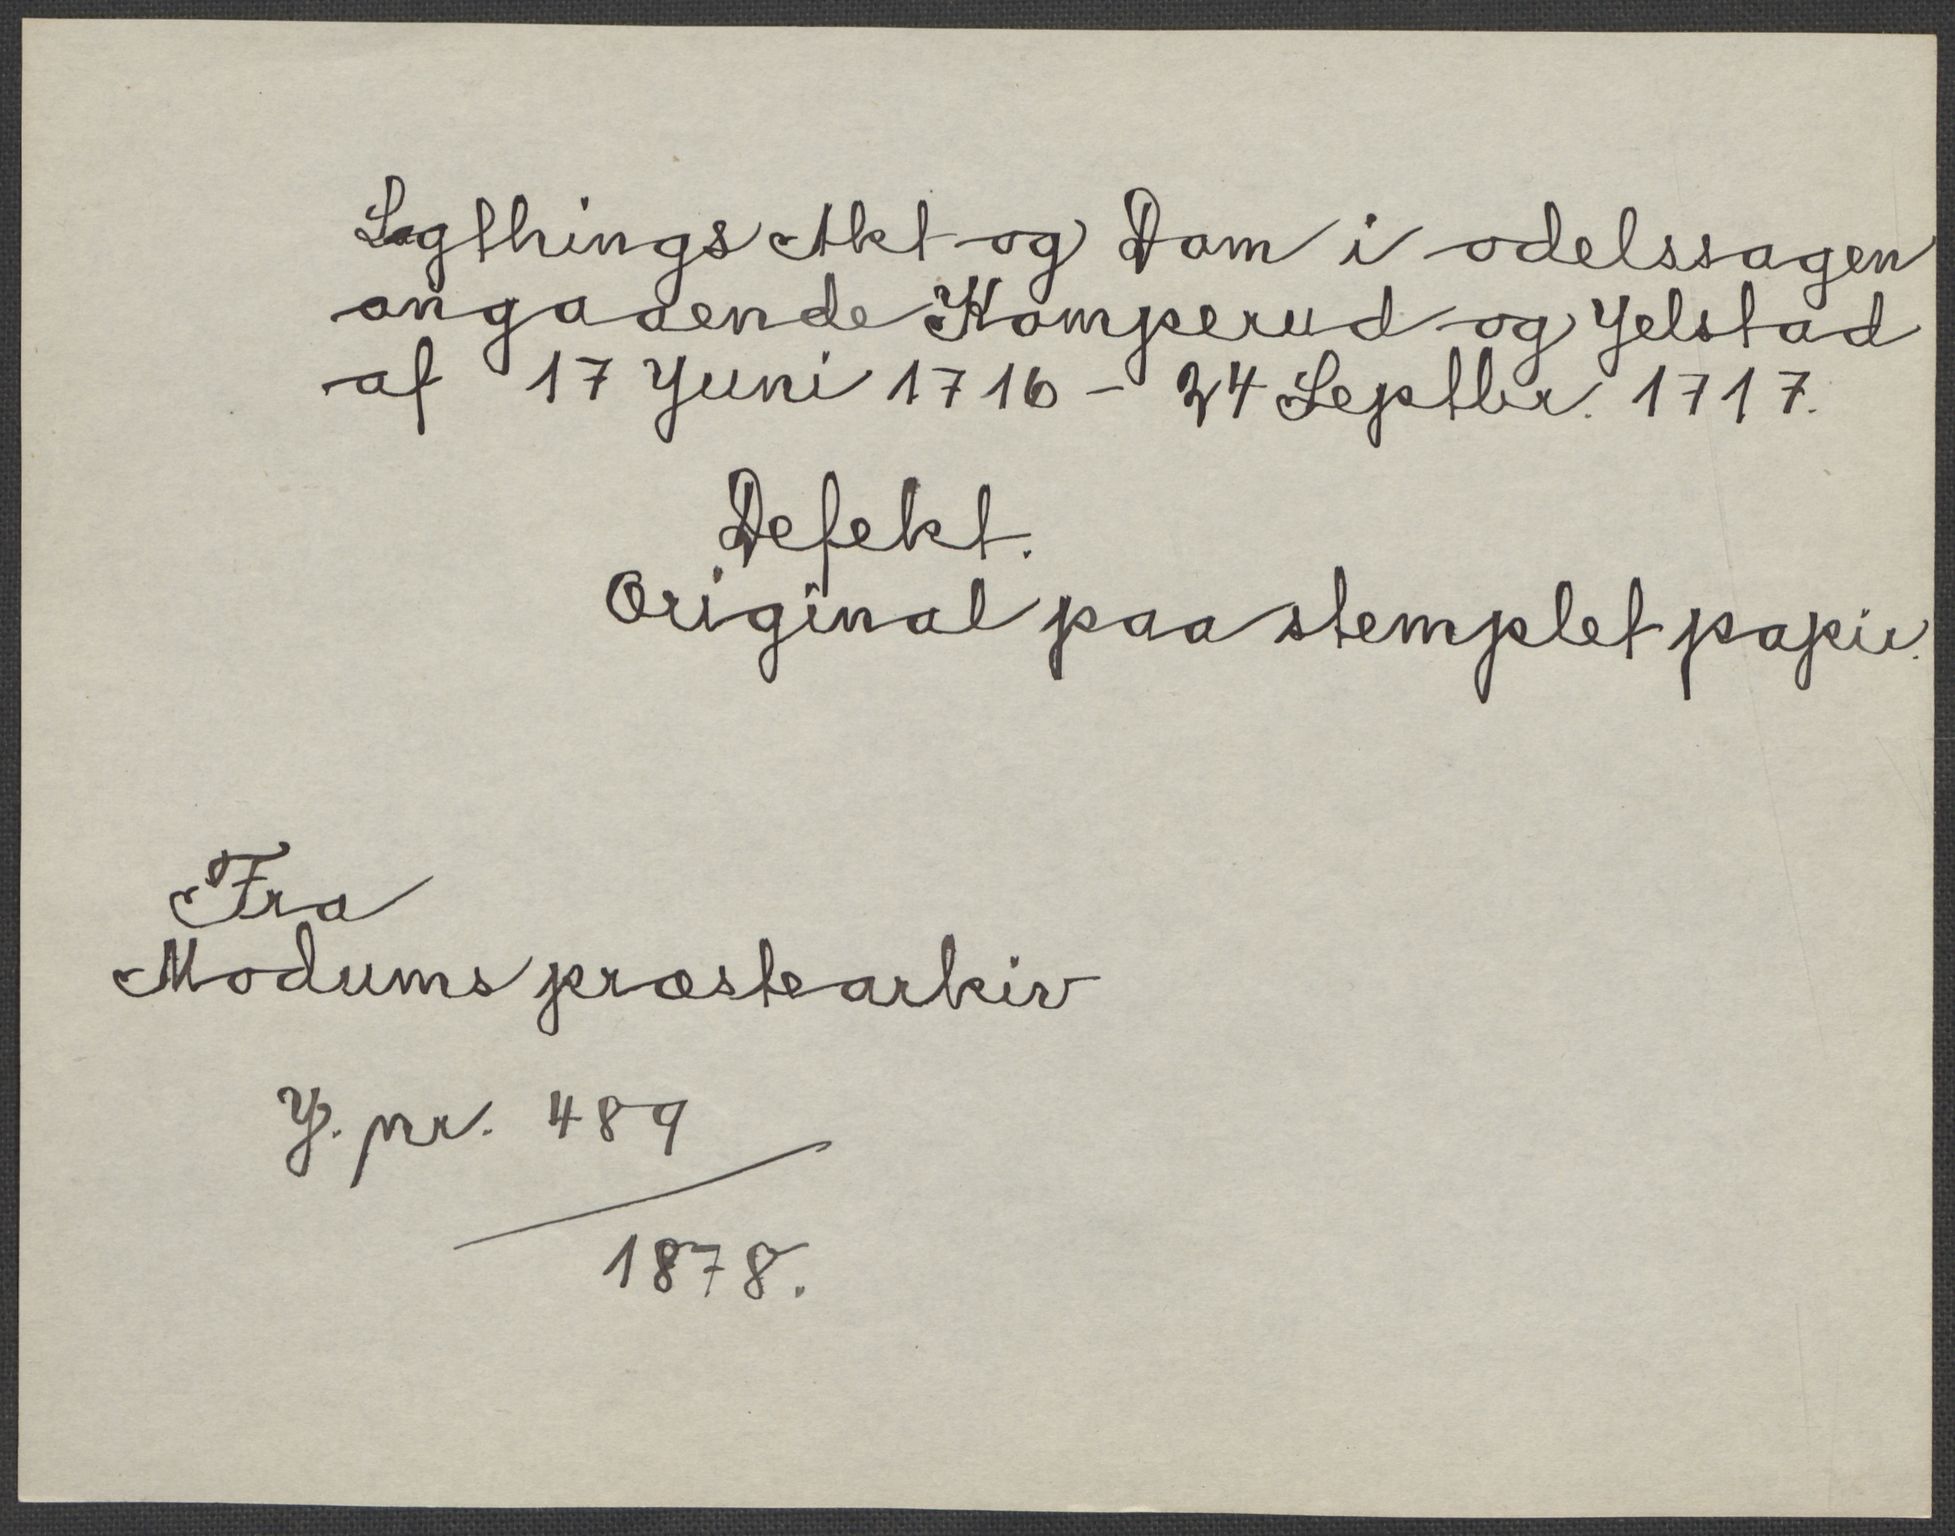 Lagthings Akt og Dom i odelssagen
angaaende Komperud og Yelstad
af 17 Juni 1716 - 24 Septbr. 1717.
Defekt.
Original paa stemplet papir.
Fra
Modums præstearkiv
J. nr. 489
1878.